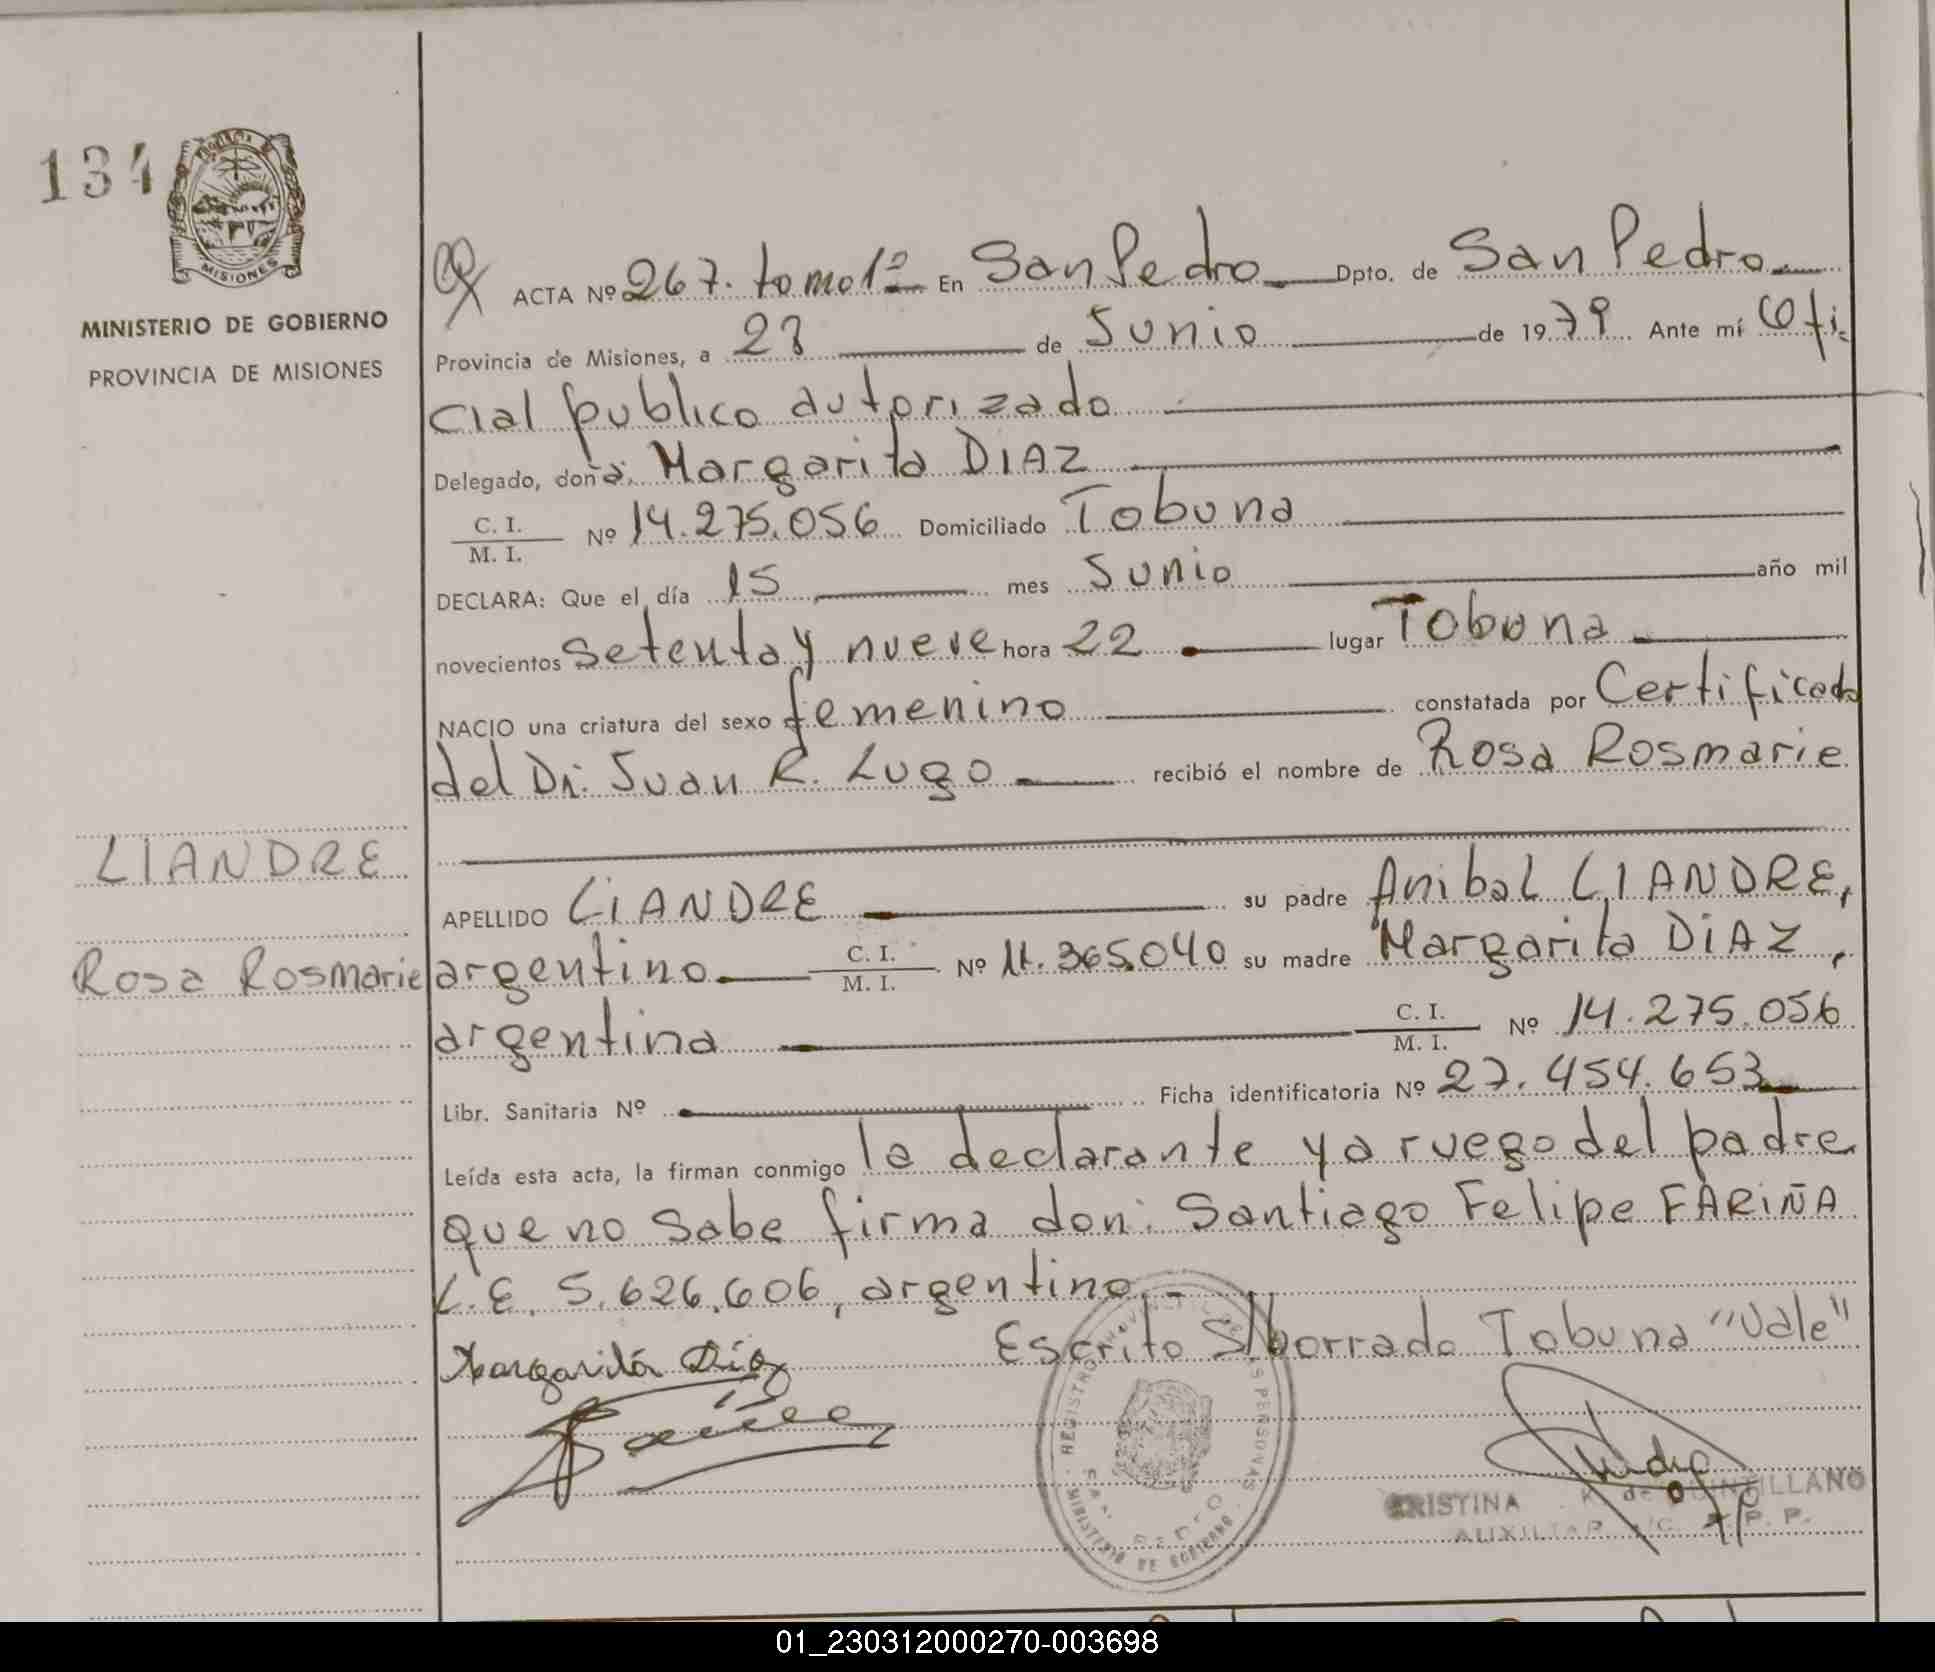 134
MISIONES
MINISTERIO DE GOBIERNO
PROVINCIA DE MISIONES
LIANDRE
Rosa Rosmarie
ACTA Nº 267. tomo 1º En San Pedro Dpto. de San Pedro
Provincia de Misiones, a 28 de Junio de 1979 Ante mí Ofi-
cial publico autorizado
Delegado, doña: Margarita DIAZ
C. I. / M. I. Nº 14.275.056 Domiciliado Tobuna
DECLARA: Que el día 15 mes Junio año mil
novecientos setenta y nueve hora 22 lugar Tobuna
NACIO una criatura del sexo femenino constatada por Certificado
del Dr. Juan R. Lugo recibió el nombre de Rosa Rosmarie
APELLIDO LIANDRE su padre Anibal LIANDRE,
argentino C. I. / M. I. Nº 11.365.040 su madre Margarita DIAZ,
argentina C. I. / M. I. Nº 14.275.056
Libr. Sanitaria Nº Ficha identificatoria Nº 27.454.653
Leída esta acta, la firman conmigo la declarante y a ruego del padre
que no sabe firma don: Santiago Felipe FARIÑA
L.E. 5.626.606, argentino.-
Escrito S/borrado Tobuna "Vale"
Margarita Díaz
REGISTRO PROVINCIAL DE LAS PERSONAS
SAN PEDRO
MINISTERIO DE GOBIERNO
CRISTINA K. de QUINTILLANO
AUXILIAR
01_230312000270-003698